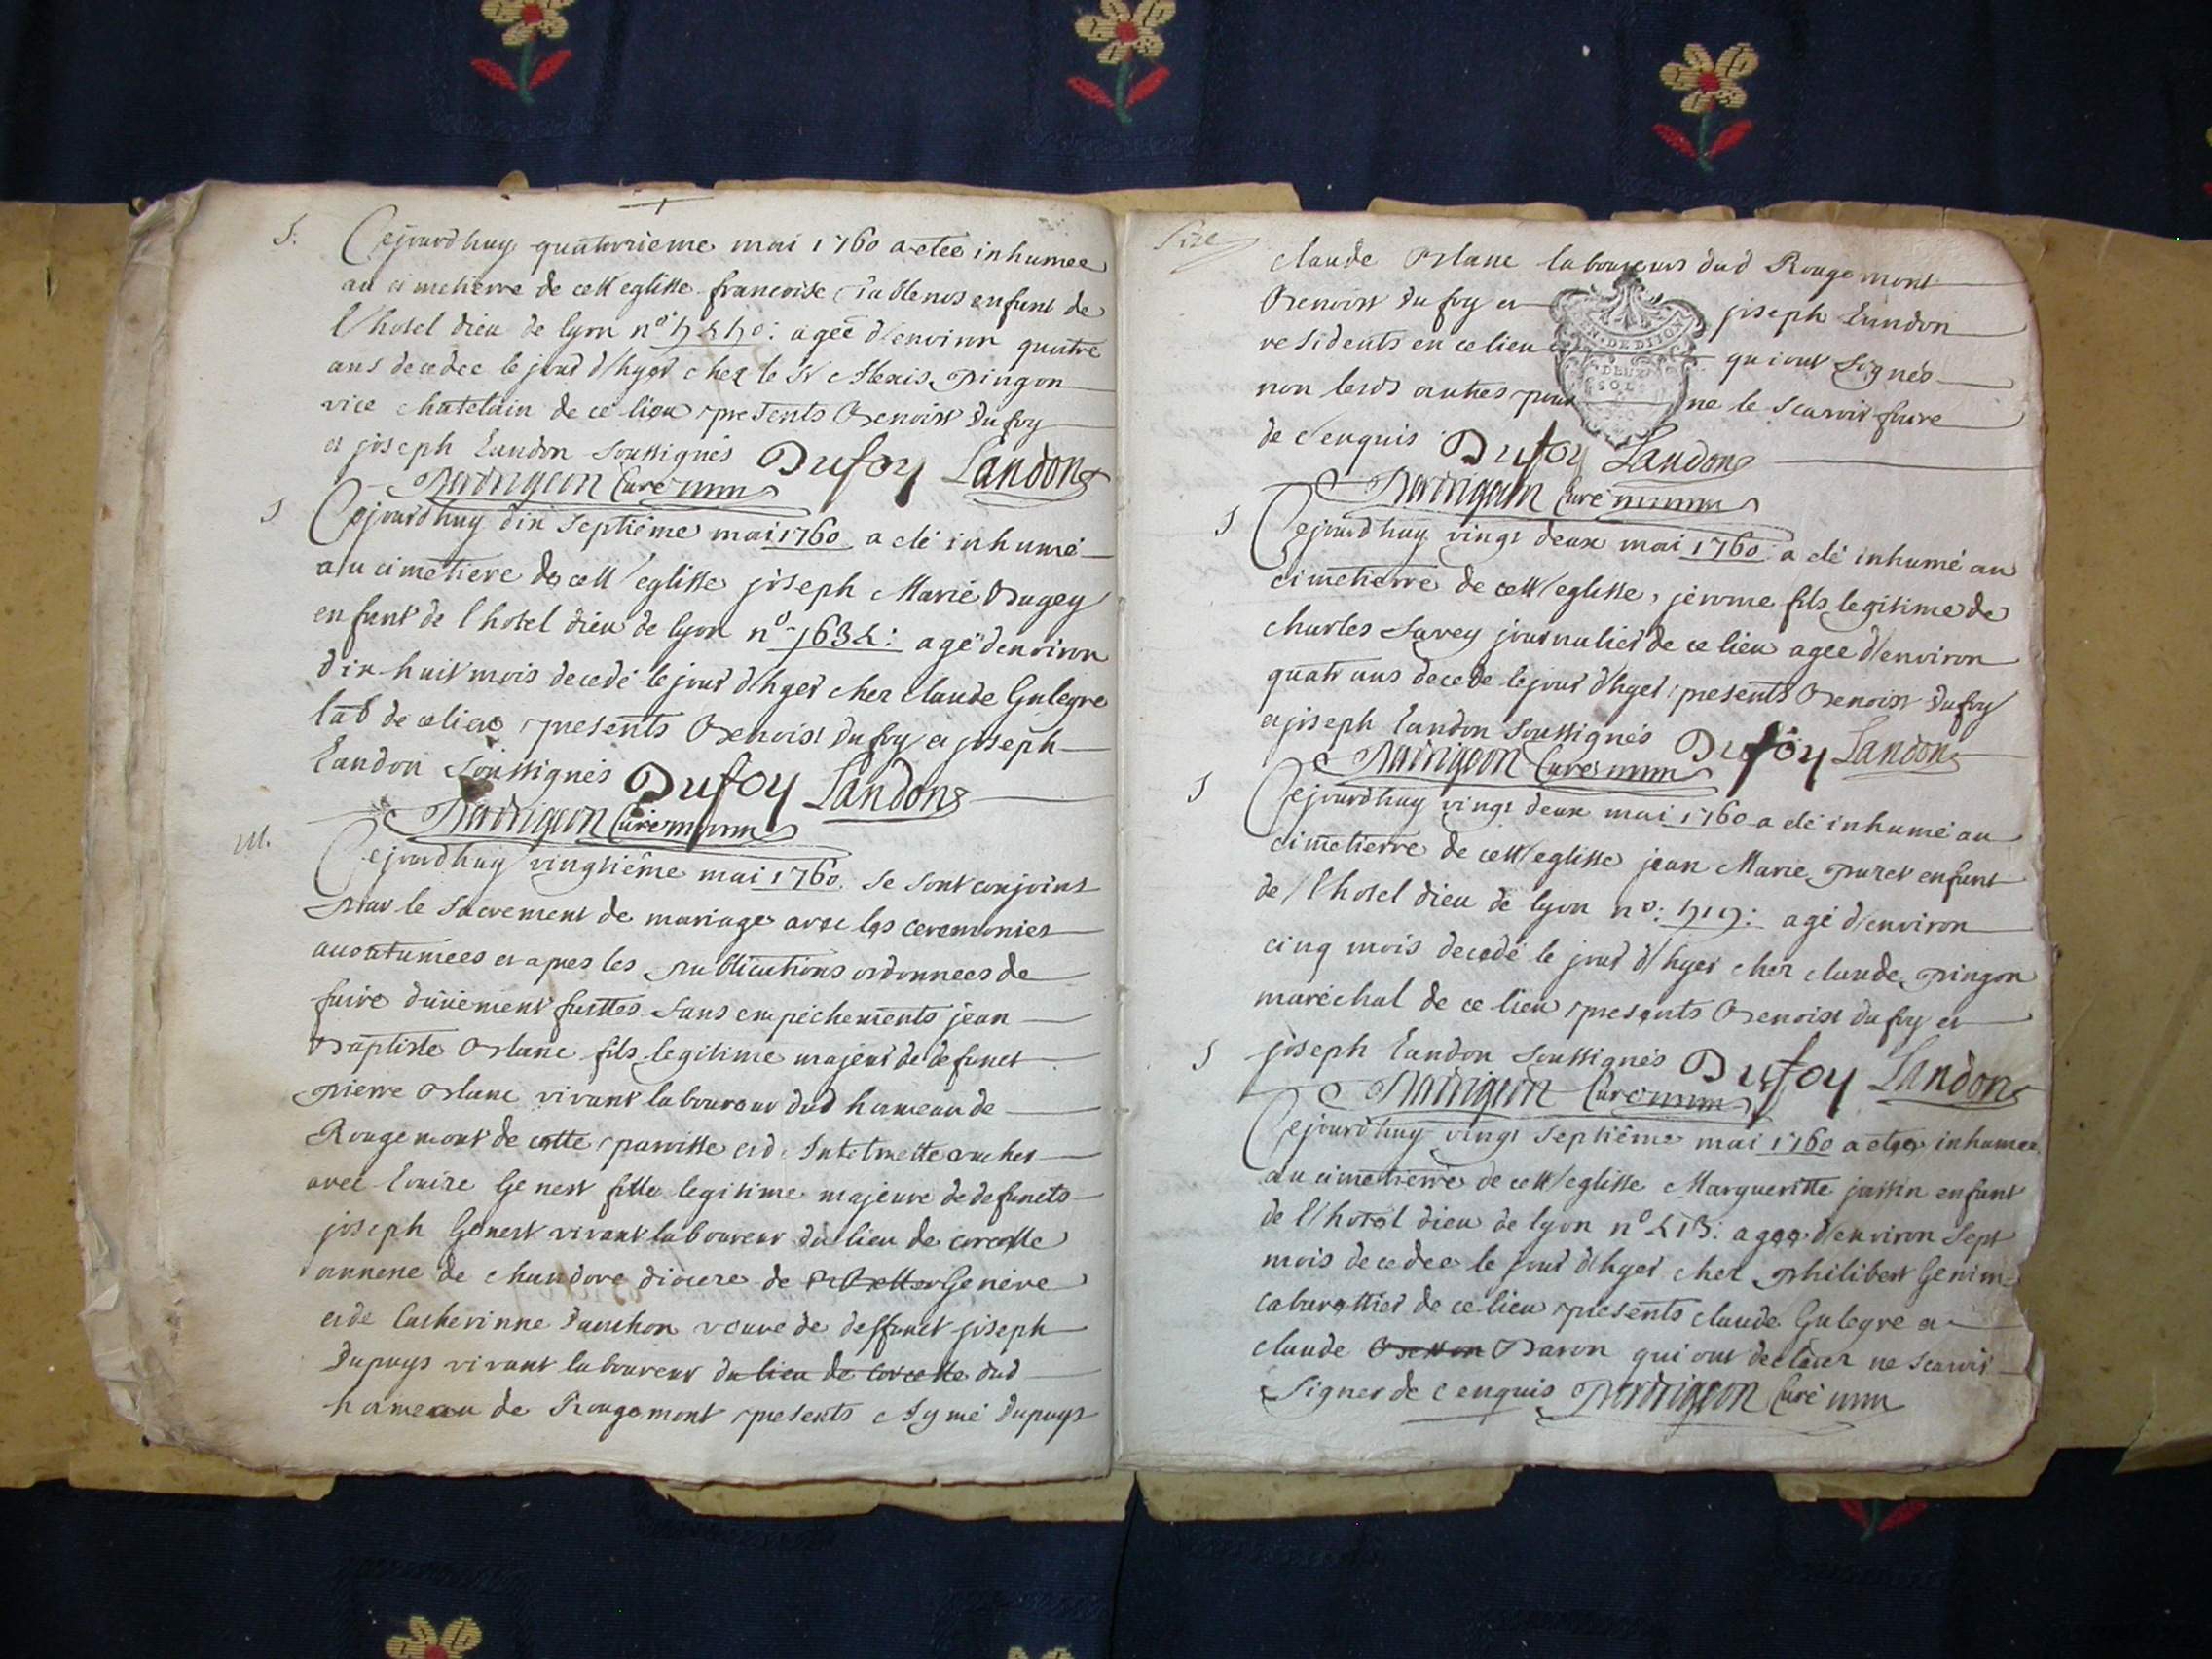 S.
Cejourd'huy quatorzieme mai 1760 a etee inhumee
au cimetierre de cett eglisse francoise enfant de
l'hotel dieu de lyon n° agée d'environ quatre
ans decedee le jour d'hyer chez le Sr Alexis pingon
vice chatelain de ce lieu presents Benoist Dufoy
et joseph Landon soussignés Dufoy Landon
Perdrigeon Curé
S
Cejourd'huy dix septiême mai 1760 a eté inhumé
au cimetiere de cett eglisse joseph Marie Bugey
enfant de l'hotel dieu de lyon n° 1634: agé d'environ
dix huit mois decedé le jour d'hyer chez claude Gulegre
lab de ce lieu presents Benoist Dufoy et joseph
Landon Soussignés Dufoy Landon
Perdrigeon Curé
M.
Cejourd'huy vingtiême mai 1760. se sont conjoins
par le Sacrement de mariage avec les ceremonies
accoutumées et apres les publications ordonnees de
faire duüement faittes sans empéchements jean
Baptiste Blanc fils legitime majeur de defunct
pierre Blanc vivant laboureur dud hameau de
Rougemont de cette parroisse et d
avec Genest fille legitime majeure de defuncts
joseph Genest vivant laboureur du lieu de corcelle
annexe de chandore diocese de Genève
et de Catherinne veuve de deffunct joseph
Dupuys vivant laboureur du lieu de corcelle dud
hameau de Rougemont presents Aymé Dupuys
claude Blanc laboureurs dud Rougemont
Benoist Dufoy et joseph Landon
residents en ce lieu qui ont signés
non lesds autres pour ne le scavoir faire
de c'enquis Dufoy Landon
Perdrigeon Curé
GEN. DE DIJON
DEUX
SOLS
S
Cejourd'huy vingt deux mai 1760 a eté inhumé au
cimetierre de cett eglisse, jerome fils legitime de
charles Savey journalier de ce lieu agee d'environ
quatr ans decede le jour d'hyer presents Benoist Dufoy
et joseph Landon Soussignés Dufoy Landon
Perdrigeon Curé
S
Cejourd'huy vingt deux mai 1760 a eté inhumé au
cimetierre de cett eglisse jean Marie puret enfant
de l'hotel dieu de lyon n°: agé d'environ
cinq mois decedé le jour d'hyer chez claude pingon
maréchal de ce lieu presents Benoist Dufoy et
joseph Landon Soussignés Dufoy Landon
Perdrigeon Curé
S
Cejourd'huy vingt septiême mai 1760 a etee inhumee
au cimetierre de cett eglisse Margueritte enfant
de l'hotel dieu de lyon n° agee d'environ sept
mois decedee le jour d'hyer chez philibert Genin
cabarettier de ce lieu presents claude Gulegre et
claude Baron qui ont declarer ne scavoir
signer de c'enquis Perdrigeon Curé